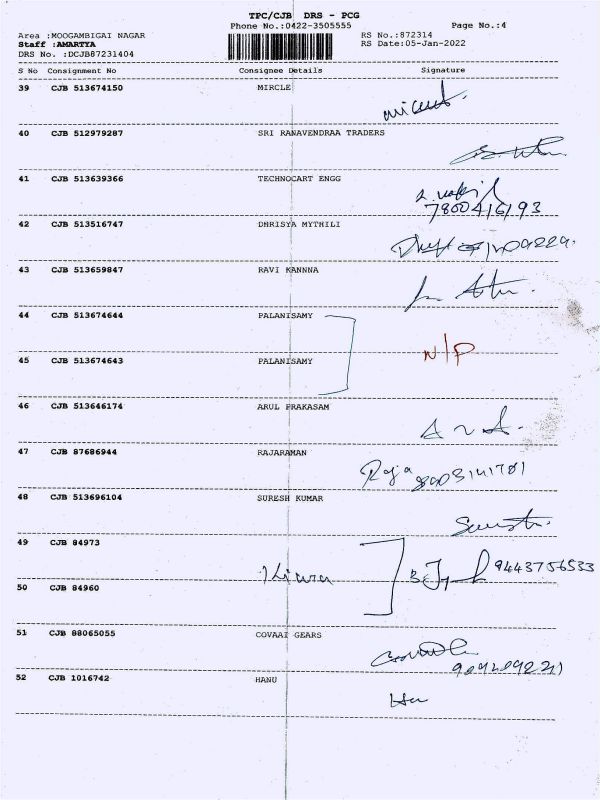 TPC/CJB DRS - PCG
Phone No.:0422-3505555 Page No.:4
Area :MOOGAMBIGAI NAGAR RS No.:872314
Staff :AMARTYA RS Date:05-Jan-2022
DRS No. :DCJB87231404
S No Consignment No Consignee Details Signature
39 CJB 513674150 MIRCLE
40 CJB 512979287 SRI RANAVENDRAA TRADERS
41 CJB 513639366 TECHNOCART ENGG
42 CJB 513516747 DHRISYA MYTHILI
43 CJB 513659847 RAVI KANNNA
44 CJB 513674644 PALANISAMY
N/P
45 CJB 513674643 PALANISAMY
46 CJB 513646174 ARUL PRAKASAM
47 CJB 87686944 RAJARAMAN
Raja
48 CJB 513696104 SURESH KUMAR
49 CJB 84973
9443756533
50 CJB 84960
51 CJB 88065055 COVAAI GEARS
52 CJB 1016742 HANU